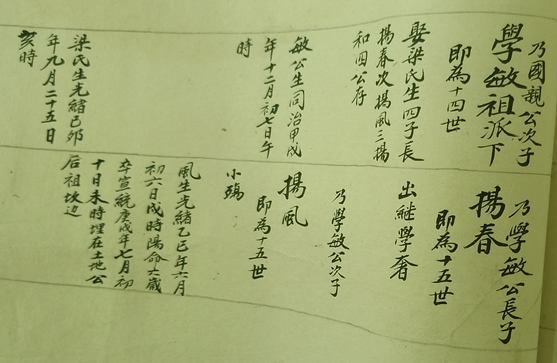 乃國親公次子
學敏祖派下
即為十四世
娶梁氏生四子長
揚春次揚風三揚
和四公存
敏公生同治甲戌
年十二月初七日午
時
梁氏生光緒己卯
年九月二十五日
亥時
乃學敏公長子
揚春
即為十五世
出継學奢
乃學敏公次子
揚風
即為十五世
小鴉
風生光緒乙巳年六月
初六日戌時陽命六歲
卒宣統庚戌年七月初
十日未時埋在土地公
后祖坎边